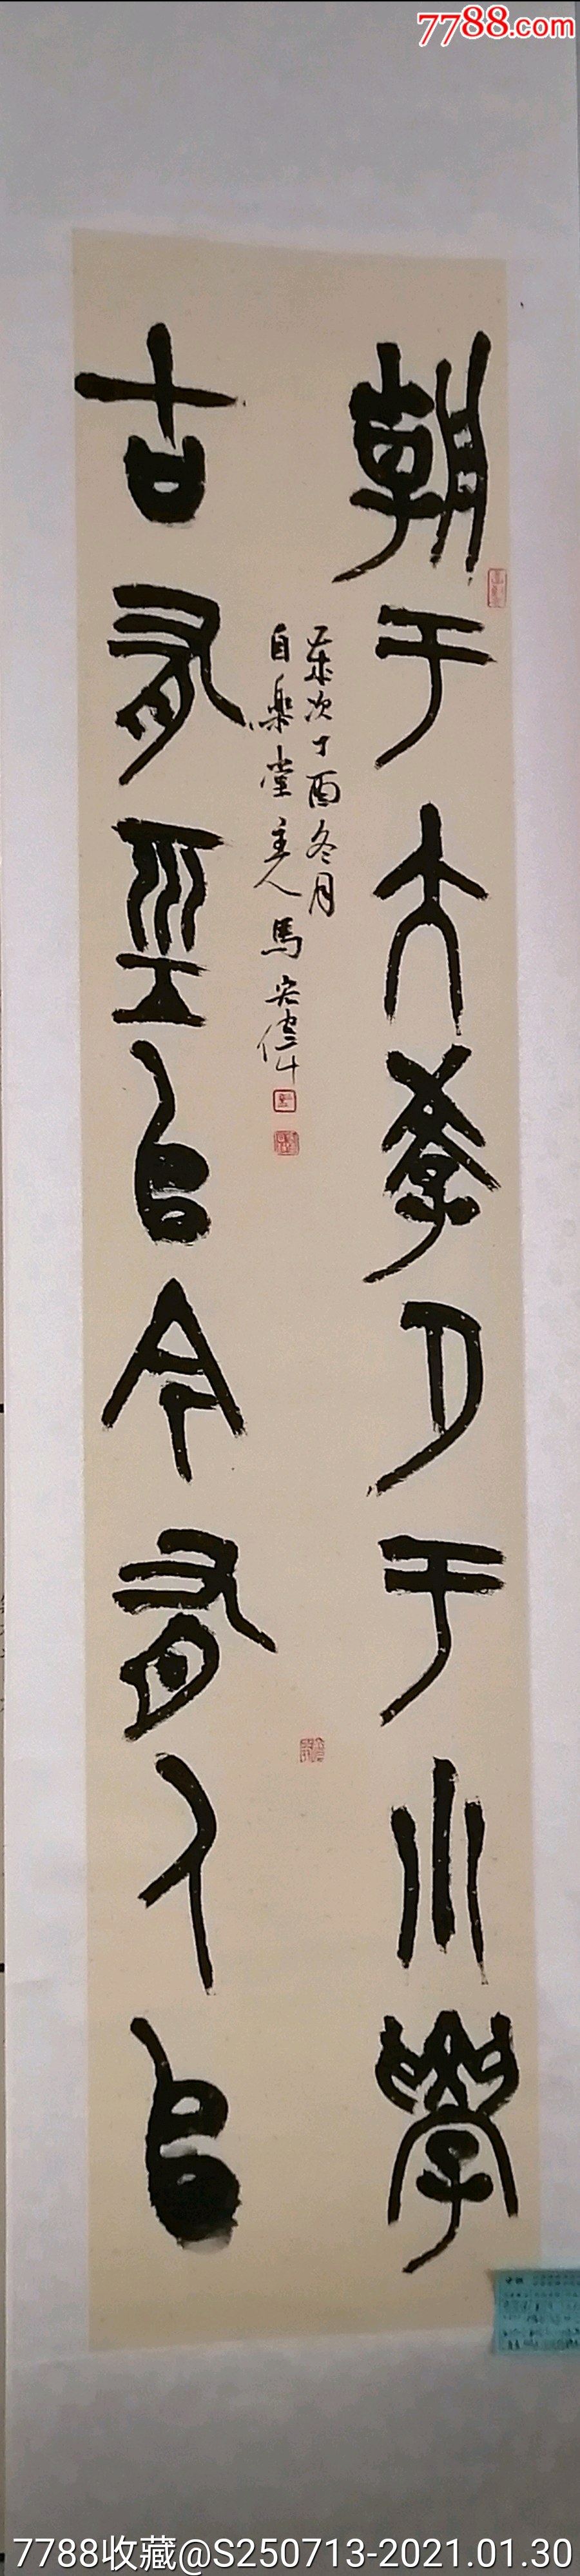 7788.com
朝于大學夕于小學
歲次丁酉冬月
自樂堂主人馬宏偉
古有巠𠂤今有人𠂤
7788收藏@S250713-2021.01.30